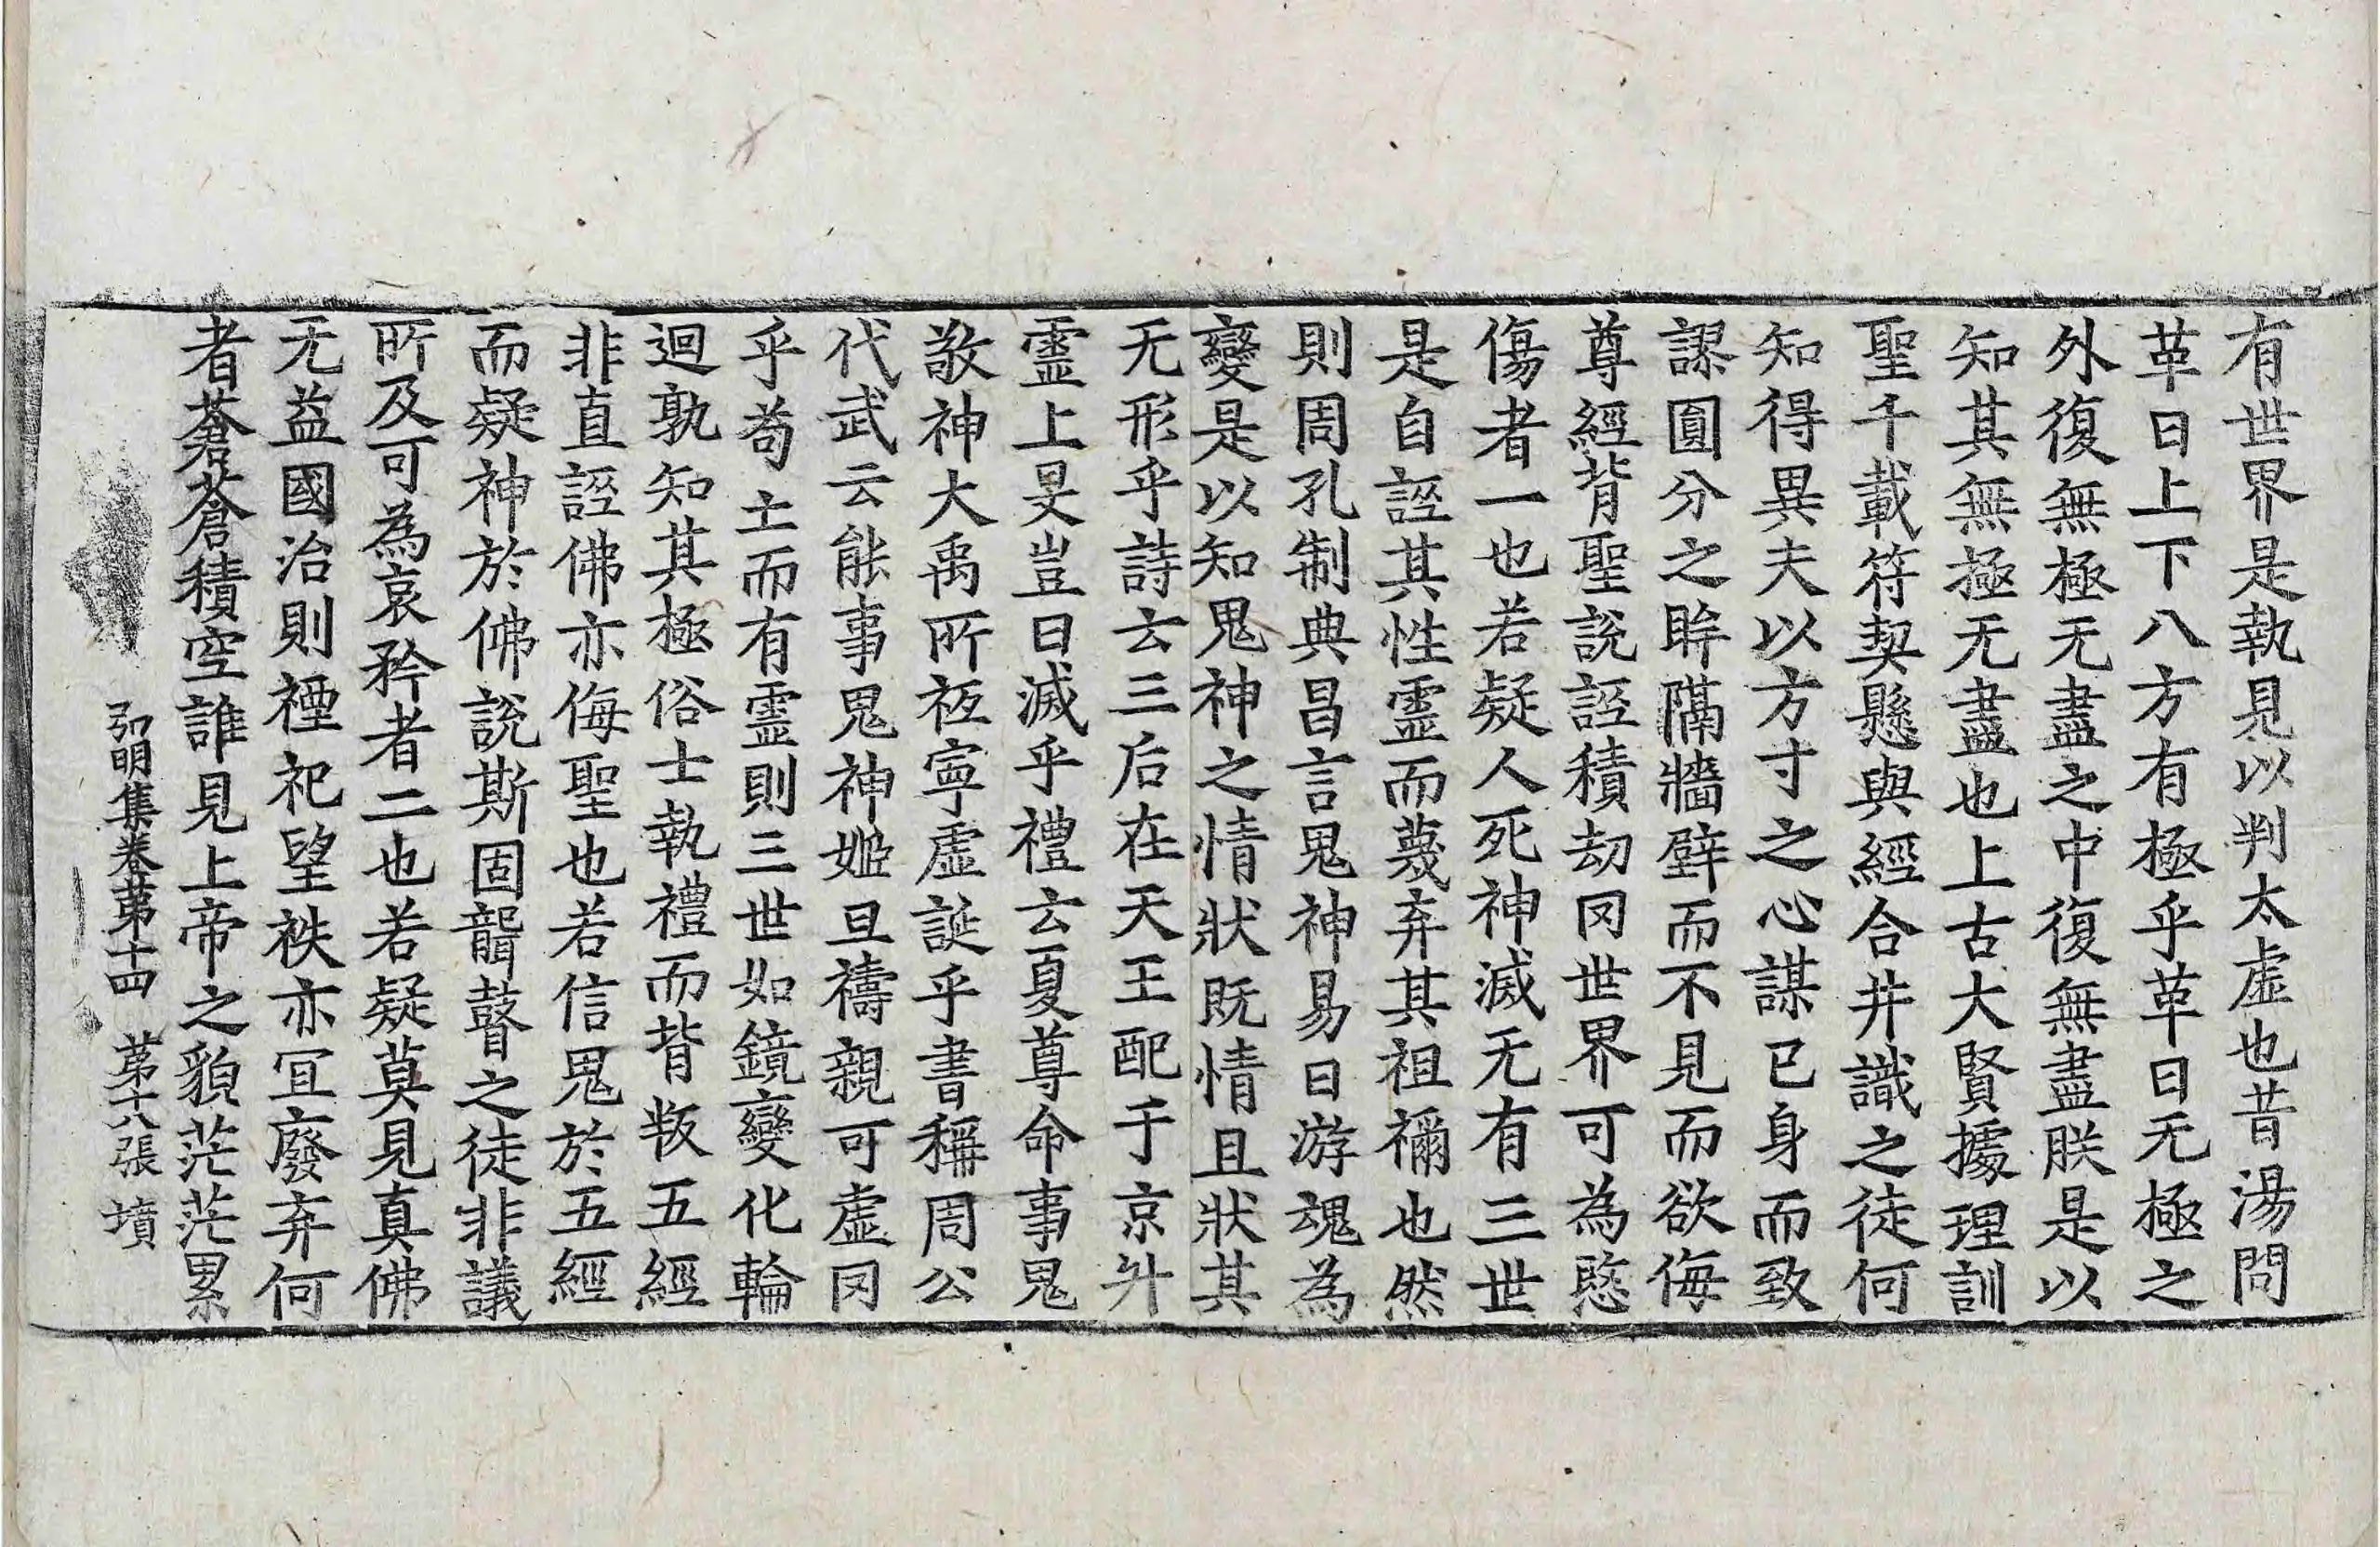 有世界是執見以判太虛也昔湯問
革曰上下八方有極乎革曰无極之
外復無極无盡之中復無盡朕是以
知其無極无盡也上古大賢據理訓
聖千載符契懸與經合井識之徒何
知得異夫以方寸之心謀己身而致
謬圓分之眸隔牆壁而不見而欲侮
尊經背聖說誣積劫罔世界可為愍
傷者一也若疑人死神滅无有三世
是自誣其性靈而蔑弃其祖禰也然
則周孔制典昌言鬼神易曰游魂為
變是以知鬼神之情狀既情且狀其
无形乎詩云三后在天王配于京升
靈上旻豈曰滅乎禮云夏尊命事鬼
敬神大禹所祗寧虛誕乎書稱周公
代武云能事鬼神姬旦禱親可虛罔
乎苟亡而有靈則三世如鏡變化輪
迴孰知其極俗士執禮而背叛五經
非直誣佛亦侮聖也若信鬼於五經
而疑神於佛說斯固聾瞽之徒非議
所及可為哀矜者二也若疑莫見真佛
无益國治則禋祀望袟亦冝廢弃何
者蒼蒼積空誰見上帝之貌茫茫累
弘明集卷第十四 第十八張 墳